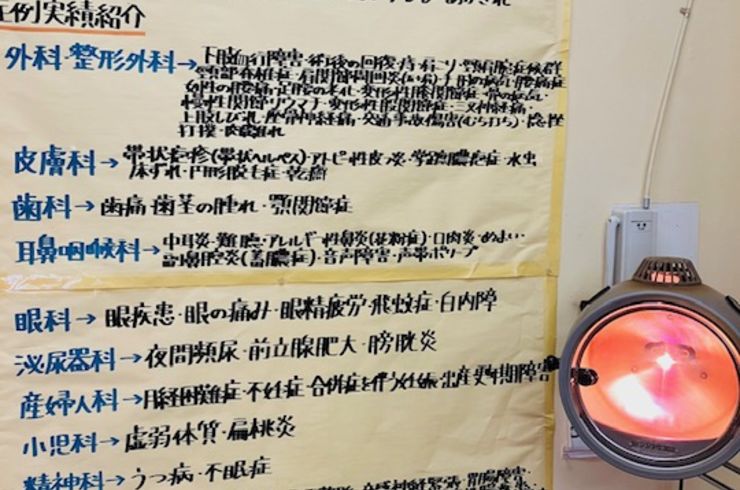 症例実績紹介
外科・整形外科→下肢血行障害・術後の回復・痔・肩こり・頸肩腕症候群
頸部脊椎症・肩関節周囲炎(五十肩)・手指の
女性の腰痛・足腰の冷え・変形性膝関節症・骨の
慢性関節リウマチ・変形性股関節症・三叉神経痛・
上肢しびれ・坐骨神経痛・交通事故傷害(むち打ち)・捻挫
打撲・
皮膚科→帯状疱疹(帯状ヘルペス)・アトピー性皮ふ炎・掌蹠膿疱症・水虫
床ずれ・円形脱毛症・乾癬
歯科→歯痛・歯茎の腫れ・顎関節症
耳鼻咽喉科→中耳炎・難聴・アレルギー性鼻炎(花粉症)・口内炎・めまい
副鼻腔炎(蓄膿症)・音声障害・声帯ポリープ
眼科→眼疾患・眼の痛み・眼精疲労・飛蚊症・白内障
泌尿器科→夜間頻尿・前立腺肥大・膀胱炎
産婦人科→月経困難症・不妊症・合併症を伴う妊娠・出産・更年期障害
小児科→虚弱体質・扁桃炎
精神科→うつ病・不眠症